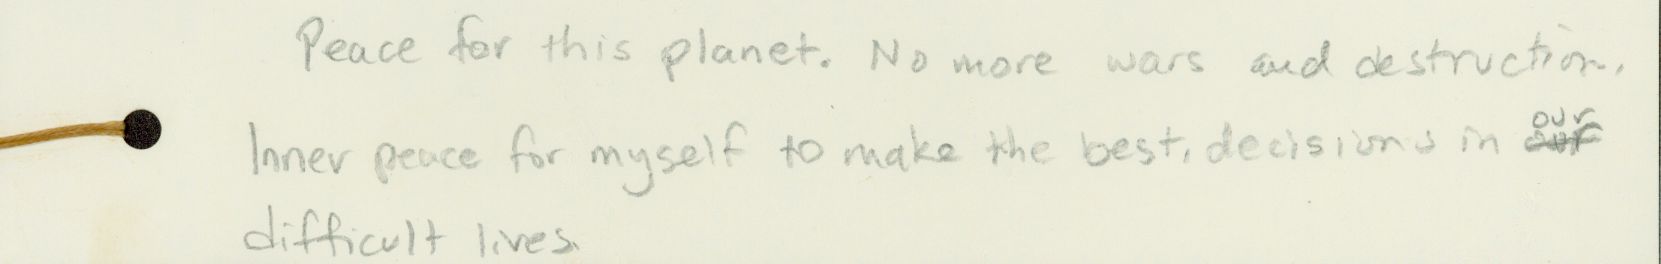 Peace for this planet. No more wars and destruction.
Inner peace for myself to make the best, decisions in our
difficult lives.